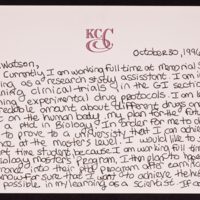 KCSC
October 30, 1996
Watson,
Currently, I am working full time at Memorial S
ing as a research study assistant. I am in
ning clinical trials in the GI section
ning experimental drug protocols. I am le
credible amount about different drugs and
on the human body. My plan for the future
a in Biology. In order for me to
to prove to a university that I am
ce at the master's level. I would like to
time student because I am working full time
iology master's program, I then plan to have
into their PhD program after earning
know for sure that I want to achieve the highest
possible in my learning as a scientist. If